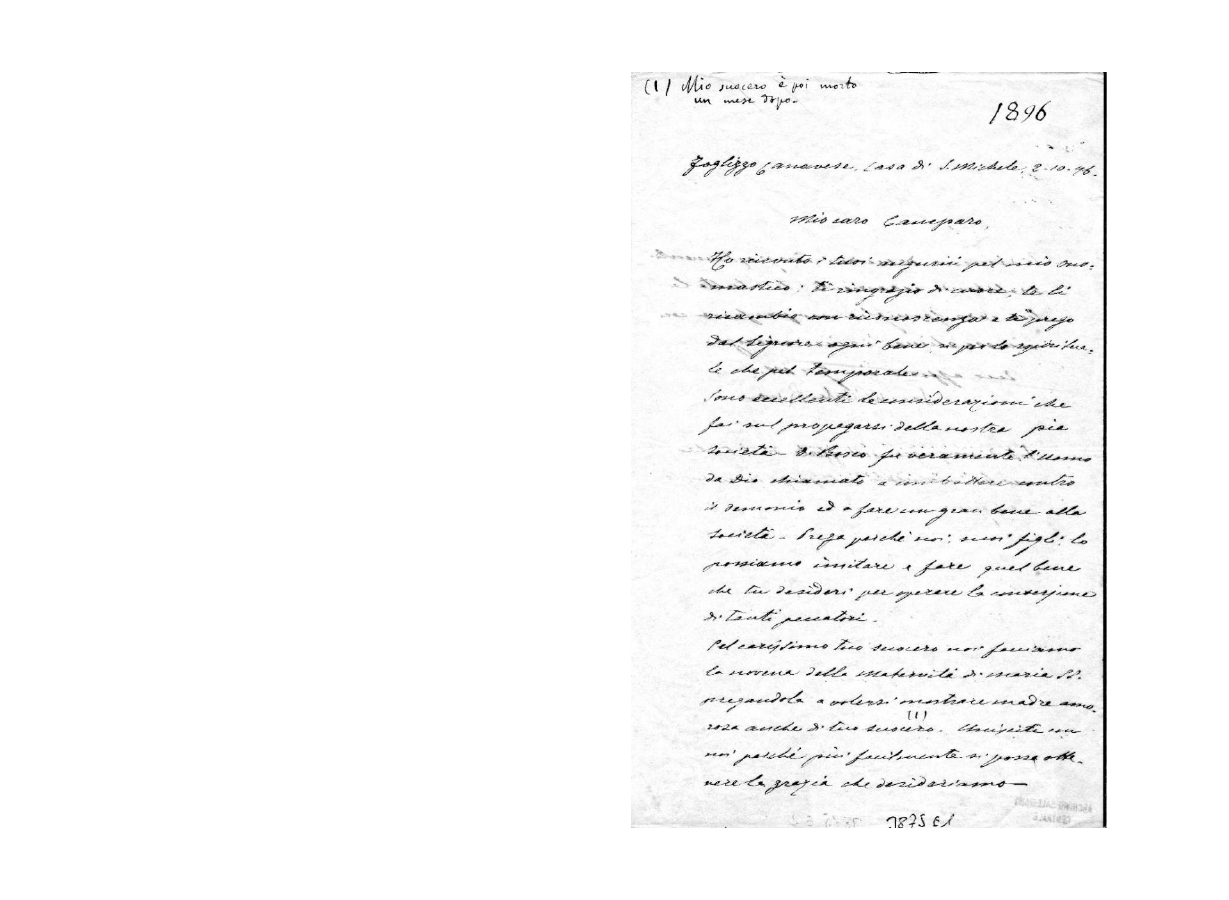 (1) Mio suocero è poi morto
un mese dopo.
1896
Foglizzo Canavese, Casa di S. Michele, 2-10-96.
Mio caro Caneparo,
Ho ricevuto i tuoi augurii pel mio ono-
mastico: ti ringrazio di cuore, te li
ricambio con riconoscenza e ti prego
dal Signore ogni bene, sì per lo spiritua-
le che pel temporale.
Sono eccellenti le considerazioni che
fai sul propagarsi della nostra pia
società. D. Bosco fu veramente l'uomo
da Dio chiamato a combattere contro
il demonio ed a fare un gran bene alla
società. Prega perché noi, suoi figli, lo
possiamo imitare e fare quel bene
che tu desideri per operare la conversione
di tanti peccatori.
Pel carissimo tuo suocero noi facciamo
la novena della Maternità di Maria SS.
pregandola a volersi mostrare madre amo-
rosa anche di tuo suocero. (1) Unisciti con
noi perché più facilmente si possa otte-
nere la grazia che desideriamo—
ARCHIVIO SALESIANO
CENTRALE